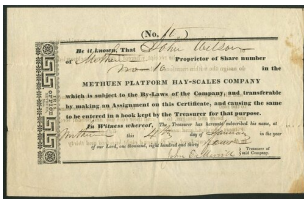 (No. 10.)
Be it known, That John Wilson
of Methuen Proprietor of Share number
No 10 in the
METHUEN PLATFORM HAY-SCALES COMPANY
which is subject to the By-Laws of the Company, and transferable
by making an Assignment on this Certificate, and causing the same
to be entered in a book kept by the Treasurer for that purpose.
In Witness whereof, The Treasurer has hereunto subscribed his name, at
Methuen this 4th day of in the year
of our Lord, one thousand, eight hundred and thirty
John Treasurer of
said Company.